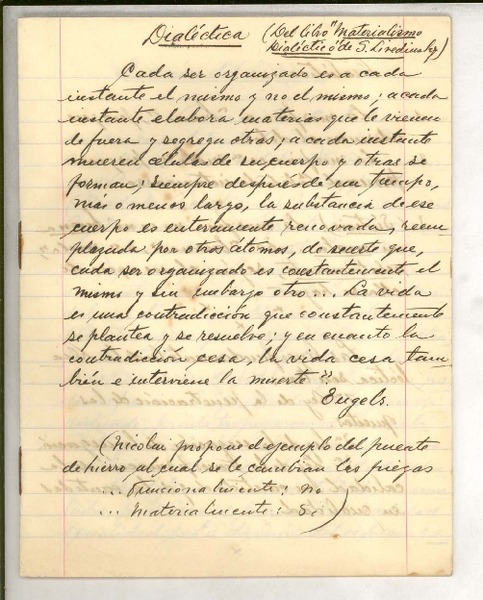 Dialéctica (Del libro "Materialismo
Dialéctico" de S.
Cada ser organizado es a cada
instante el mismo y no el mismo; a cada
instante elabora materias que le vienen
de fuera y segrega otras; a cada instante
mueren células de su cuerpo y otras se
forman; siempre después de un tiempo,
más o menos largo, la substancia de ese
cuerpo es enteramente renovada, reem
plazada por otros átomos, de suerte que,
cada ser organizado es constantemente el
mismo y sin embargo otro... La vida
es una contradicción que constantemente
se plantea y se resuelve; y en cuanto la
contradicción cesa, la vida cesa tam
bién e interviene la muerte"
Engels.
(Nicolai propone el ejemplo del puente
de hierro al cual se le cambian las piezas
... Funcionalmente: no
... Materialmente: Si)